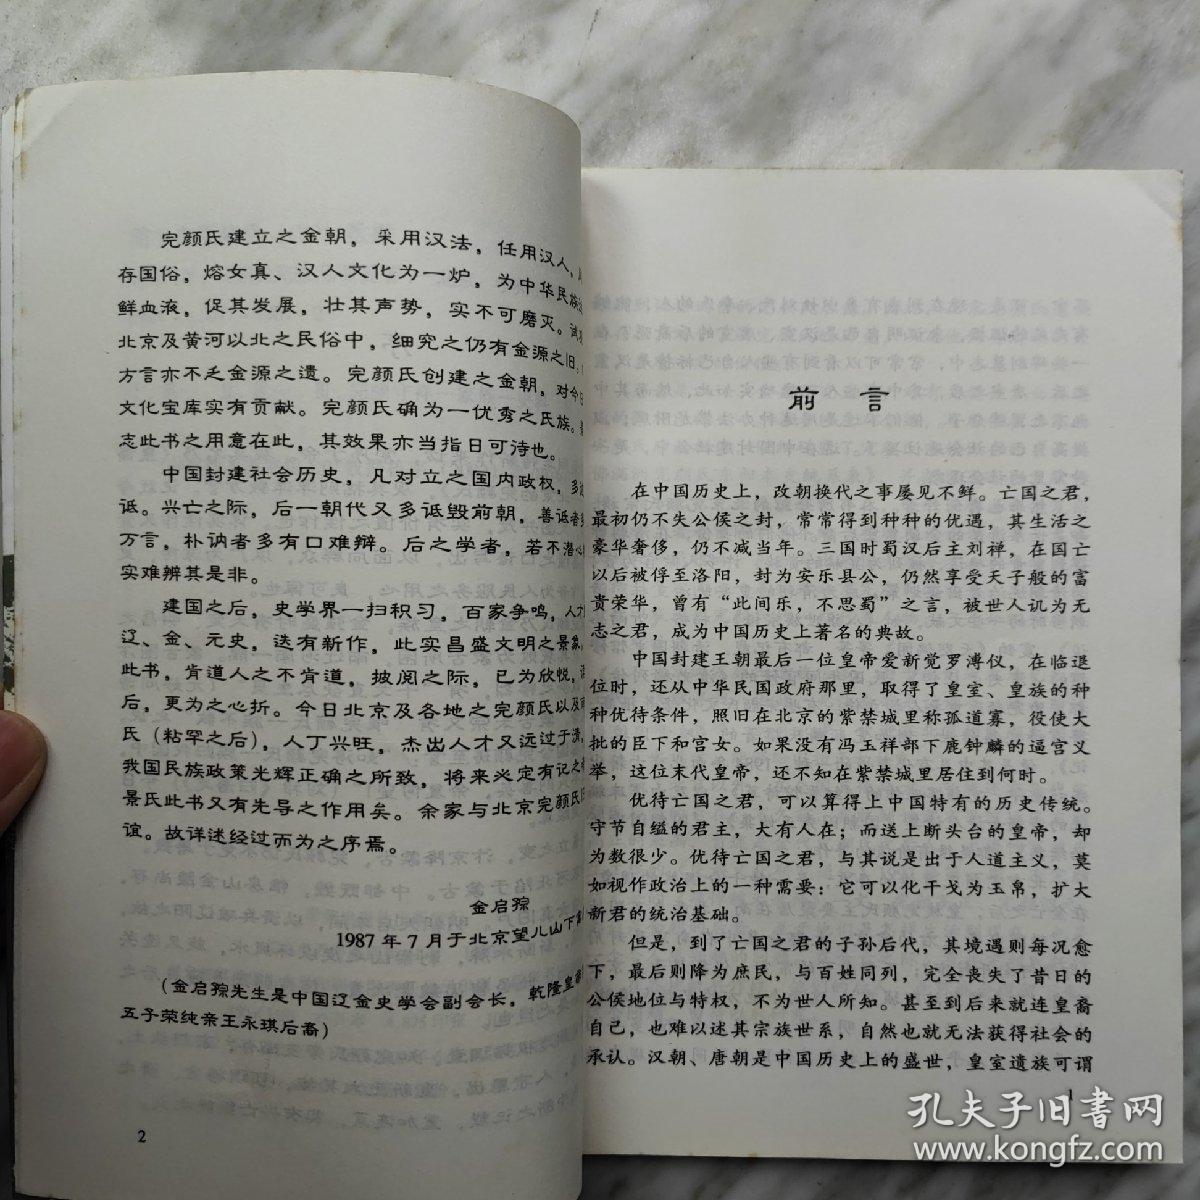 完颜氏建立之金朝，采用汉法，任用汉人，
存国俗，熔女真、汉人文化为一炉，为中华民族
鲜血液，促其发展，壮其声势，实不可磨灭。试
北京及黄河以北之民俗中，细究之仍有金源之旧，
方言亦不乏金源之遗。完颜氏创建之金朝，对今
文化宝库实有贡献。完颜氏确为一优秀之氏族。
志此书之用意在此，其效果亦当指日可待也。
中国封建社会历史，凡对立之国内政权，多
诋。兴亡之际，后一朝代又多诋毁前朝，善诋者
万言，朴讷者多有口难辩。后之学者，若不潜心
实难辨其是非。
建国之后，史学界一扫积习，百家争鸣，人才
辽、金、元史，迭有新作，此实昌盛文明之景象
此书，肯道人之不肯道，披阅之际，已为欣悦，
后，更为之心折。今日北京及各地之完颜氏以及
氏（粘罕之后），人丁兴旺，杰出人才又远过于
我国民族政策光辉正确之所致，将来必定有记之
景氏此书又有先导之作用矣。余家与北京完颜氏
谊。故详述经过而为之序焉。
金启孮
1987年7月于北京望儿山下
（金启孮先生是中国辽金史学会副会长，乾隆皇帝
五子荣纯亲王永琪后裔）
2
前言
在中国历史上，改朝换代之事屡见不鲜。亡国之君，
最初仍不失公侯之封，常常得到种种的优遇，其生活之
豪华奢侈，仍不减当年。三国时蜀汉后主刘禅，在国亡
以后被俘至洛阳，封为安乐县公，仍然享受天子般的富
贵荣华，曾有“此间乐，不思蜀”之言，被世人讥为无
志之君，成为中国历史上著名的典故。
中国封建王朝最后一位皇帝爱新觉罗溥仪，在临退
位时，还从中华民国政府那里，取得了皇室、皇族的种
种优待条件，照旧在北京的紫禁城里称孤道寡，役使大
批的臣下和宫女。如果没有冯玉祥部下鹿钟麟的逼宫义
举，这位末代皇帝，还不知在紫禁城里居住到何时。
优待亡国之君，可以算得上中国特有的历史传统。
守节自缢的君主，大有人在；而送上断头台的皇帝，却
为数很少。优待亡国之君，与其说是出于人道主义，莫
如视作政治上的一种需要：它可以化干戈为玉帛，扩大
新君的统治基础。
但是，到了亡国之君的子孙后代，其境遇则每况愈
下，最后则降为庶民，与百姓同列，完全丧失了昔日的
公侯地位与特权，不为世人所知。甚至到后来就连皇裔
自己，也难以述其宗族世系，自然也就无法获得社会的
承认。汉朝、唐朝是中国历史上的盛世，皇室遗族可谓
1
孔夫子旧书网
www.kongfz.com